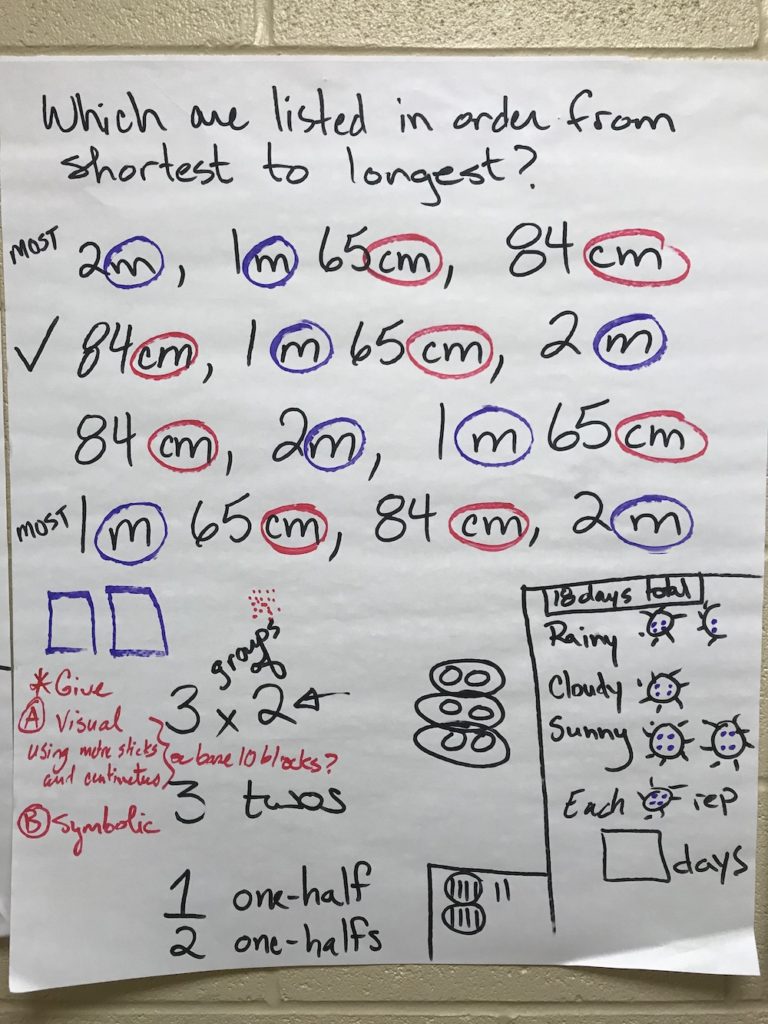 Which are listed in order from
shortest to longest?
MOST 2m, 1m 65cm, 84 cm
✓ 84cm, 1 m 65 cm, 2 m
84 cm, 2m, 1 m 65 cm
MOST 1 m 65 cm, 84 cm, 2 m
groups
of
3 x 2
3 twos
* Give
A Visual
using metre sticks
and centimetres
or base 10 blocks?
B Symbolic
1 one-half
2 one-halfs
18 days total
Rainy
Cloudy
Sunny
Each rep
days